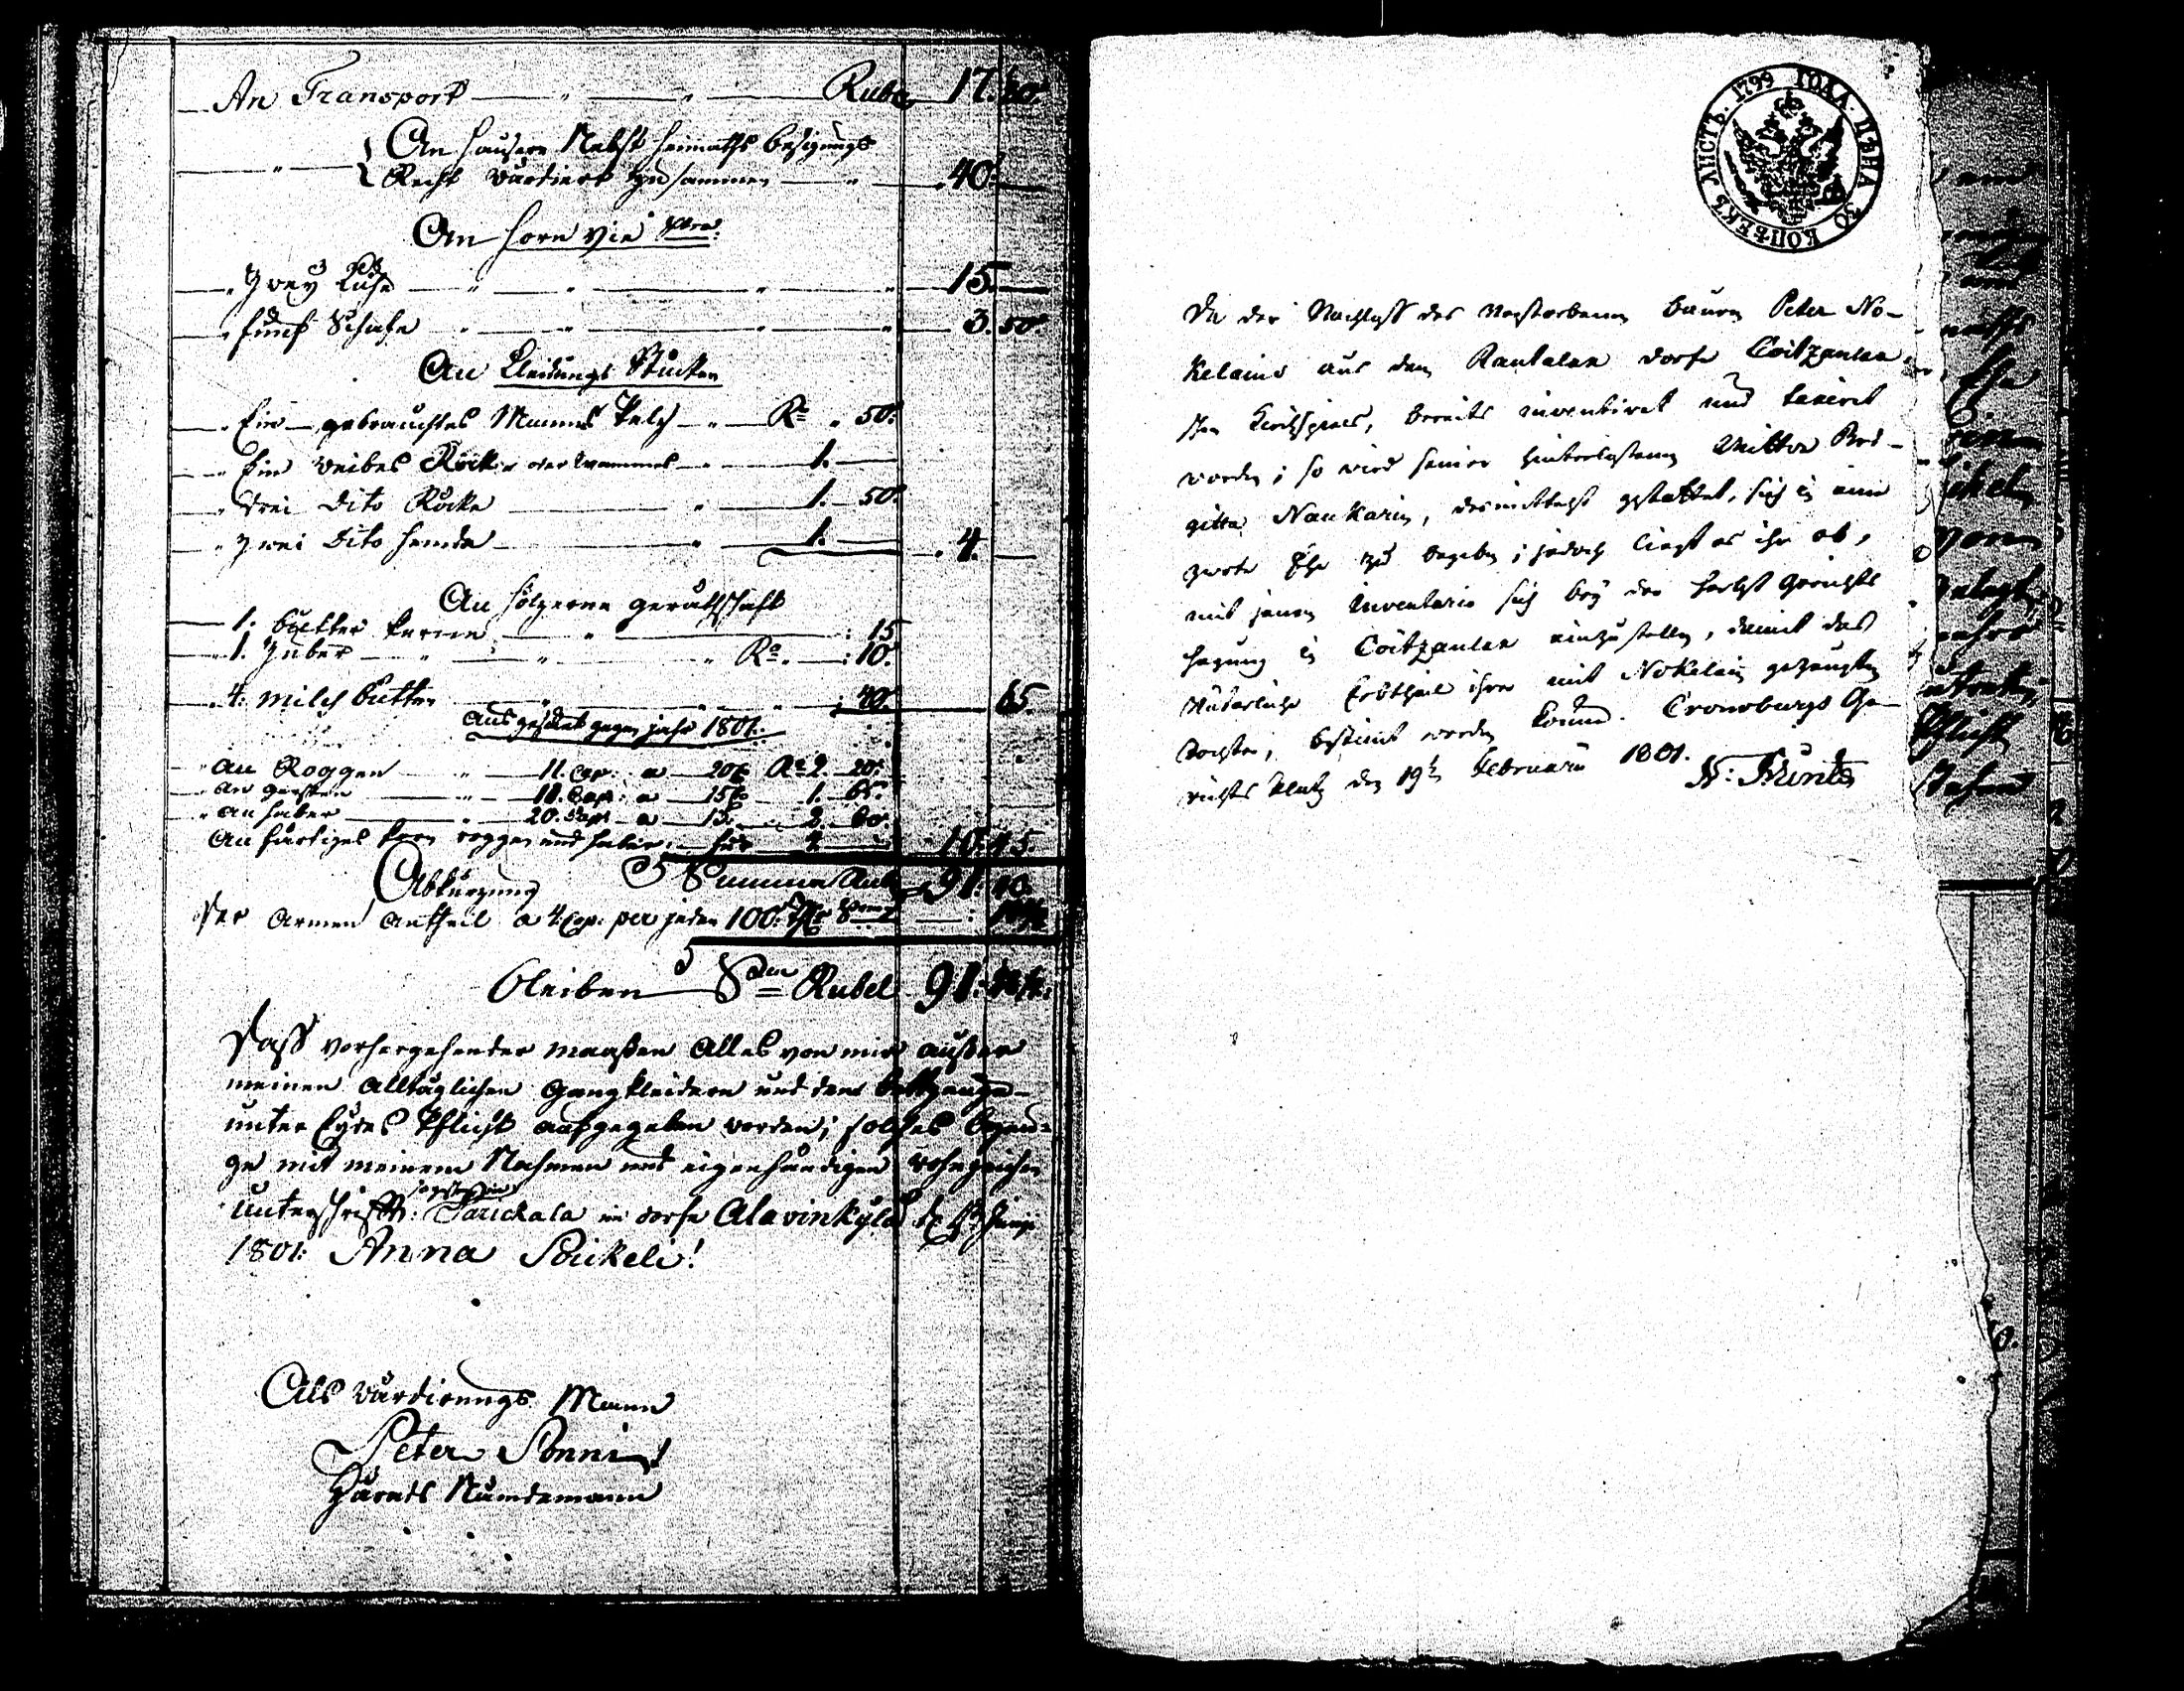 An Transport Rubel 17. 50.
An Hausern Nebst heimaths besizungs
Recht värdiert zusammen 40.
An Horn Vie
Zwey Kühe 15.
fünf Schafe 3. 50.
An Kleidungs Stücken
Ein gebrauchtes Manns Pelz Ro 50.
Ein Weibes Rock oder Wammes 1.
Drei Dito Röcke 1. 50.
Zwei Dito Hemde 1. 4.
An Hölzerne geräthschaft
1. butter kerne 15
1. Zuber Ro. 10.
4. Milch butten 40. 65.
ausgesäet gegen jahr 1801.
An Roggen 11. Cap. a 20 Ro 2. 20.
An gersten 11. Cap. a 15 1. 65.
An haber 20. Cap. a 13. 2. 60.
An färtiges korn roggen und haber für 4. 10. 45.
Abkürzung Summa Rub 91. 10.
Der Armen Antheil a 4 Cop. per jeden 100
bleiben Rubel 91.
Dass vorhergehender maaßen Alles von mir außer
meinen Alltäglichen Gangkleidern und dem bettzeuge
unter Eydes Pflicht aufgegeben worden; solches bezeu-
ge mit meinem Nahmen und eigenhändigen
unterschrifft: Parickala im dorfe Alavinkylä
1801. Anna Poickeli!
Als Värdierungs Mann
Peter Ponni
Härads Nämdemann
ЛИСТЪ. 1799 ГОДА. ЦѢНА 30 КОПѢЕКЪ
Da der Nachlass des verstorbenen bauren Peter No-
kelains aus dem Rautalax dorfe Coitzanlax-
schen Kirchspiels, bereits inventiret und taxiret
worden; so wird seiner hinterlassenen Wittwe Bri-
gitta Naukarin, desmittelst gestattet, sich in eine
zweite Ehe zu begeben; jedoch liegt es ihr ob,
mit jenem Inventario sich bey der Herbst Gerichts
Hegung in Coitzanlax einzustellen, damit das
Väterliche Erbtheil ihrer mit Nokelain gezeugten
Tochter, bestimt werden könne. Cronoburgs Ge-
richts Platz den 19t Februarii 1801.